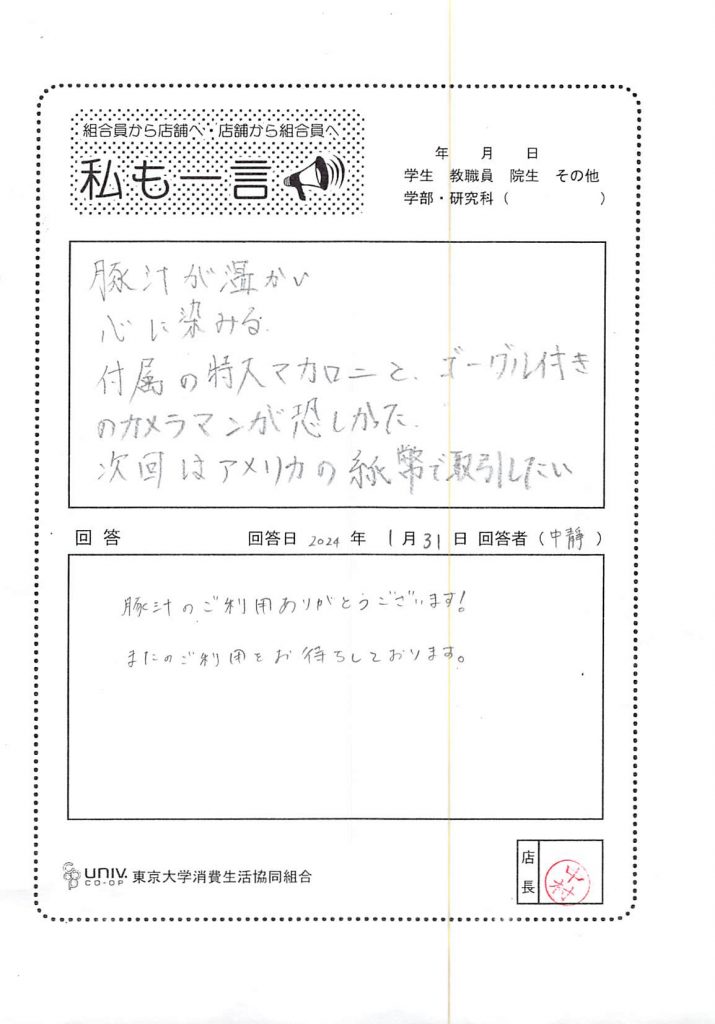 組合員から店舗へ 店舗から組合員へ
私も一言
年 月 日
学生 教職員 院生 その他
学部・研究科（ ）
豚汁が温かい
心に染みる
付属の特大マカロニと、ゴーグル付き
のカメラマンが恐しかった.
次回はアメリカの紙幣で取引したい
回答 回答日 2024 年 1月31日 回答者（中静）
豚汁のご利用ありがとうございます!
またのご利用をお待ちしております。
UNIV. CO-OP 東京大学消費生活協同組合
店長